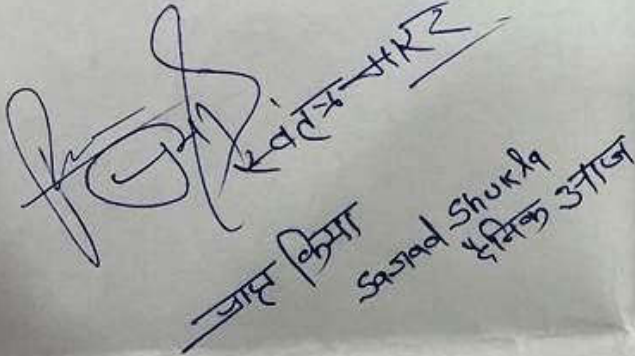 स्वतंत्र भारत
प्राप्त किया
Sajad Shukla
दैनिक आज